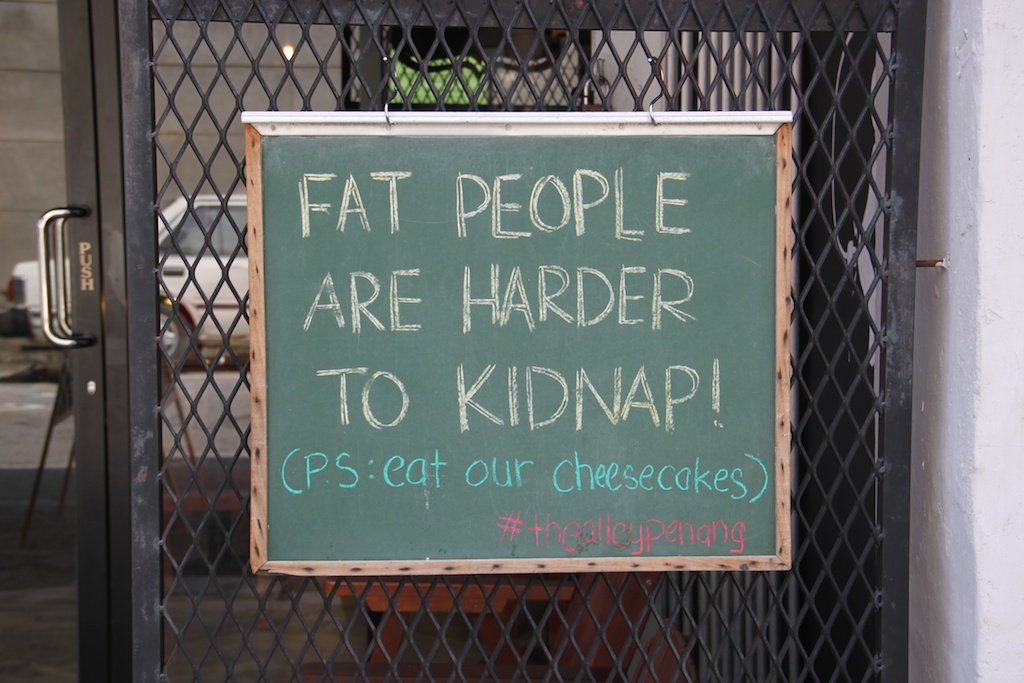 PUSH
FAT PEOPLE
ARE HARDER
TO KIDNAP!
(P.S: eat our cheesecakes)
#thealleypenang